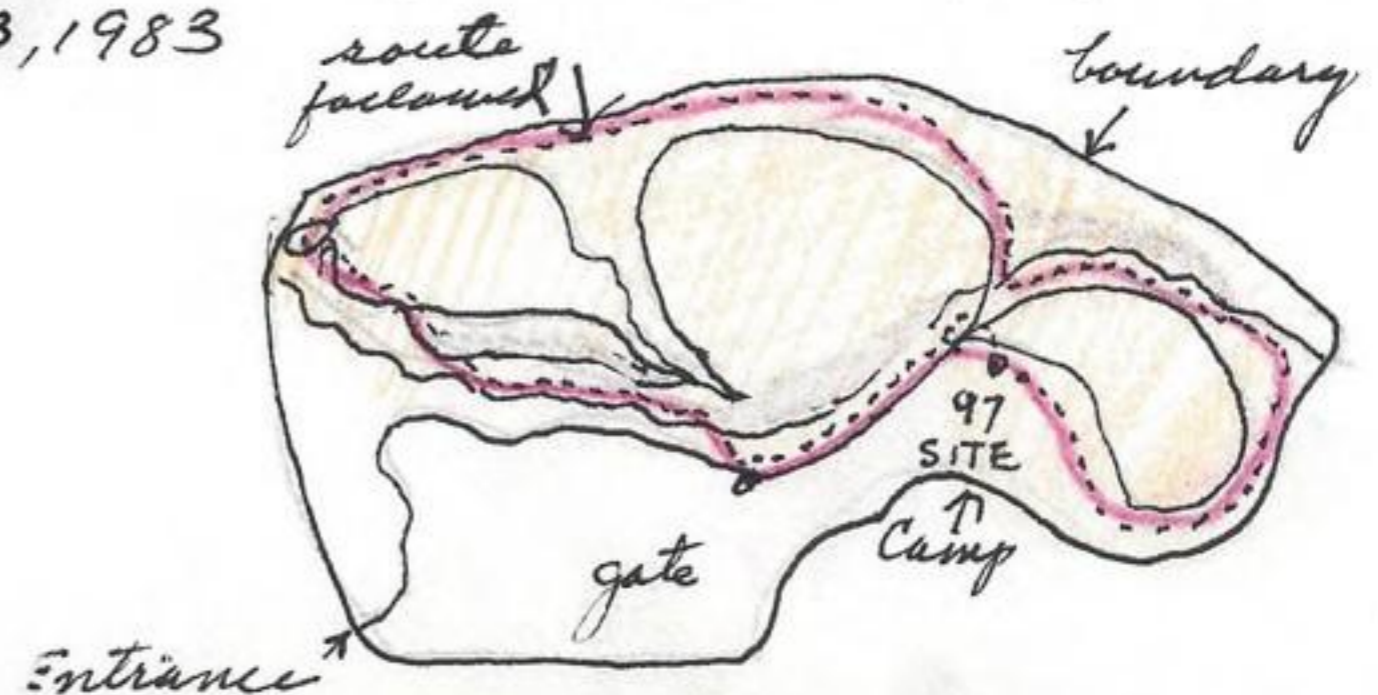 3, 1983
route
followed
boundary
97
SITE
Camp
gate
Entrance